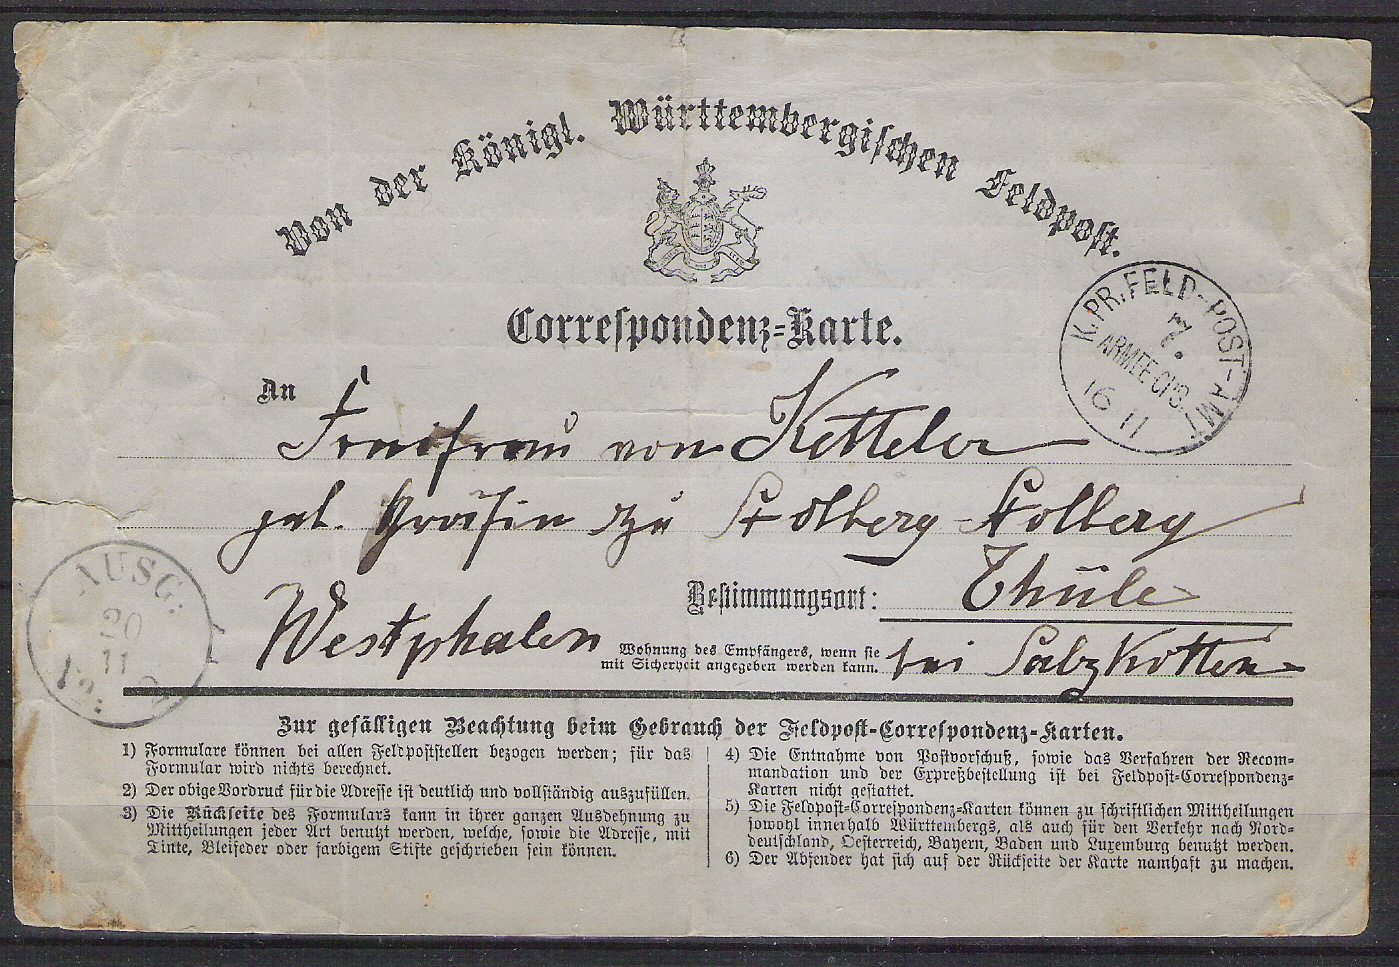 Von der Königl. Württembergischen Feldpost.
Correspondenz-Karte.
K. PR. FELD-POST-AMT
7.
ARMEE-CPS.
16 11
An
Freifrau von Ketteler
geb. Gräfin zu Stolberg Stolberg
Bestimmungsort: Thüle
Westphalen
Wohnung des Empfängers, wenn sie
mit Sicherheit angegeben werden kann.
bei Salzkotten
AUSG:
20
11
Zur gefälligen Beachtung beim Gebrauch der Feldpost-Correspondenz-Karten.
1) Formulare können bei allen Feldpoststellen bezogen werden; für das
Formular wird nichts berechnet.
2) Der obige Vordruck für die Adresse ist deutlich und vollständig auszufüllen.
3) Die Rückseite des Formulars kann in ihrer ganzen Ausdehnung zu
Mittheilungen jeder Art benutzt werden, welche, sowie die Adresse, mit
Tinte, Bleifeder oder farbigem Stifte geschrieben sein können.
4) Die Entnahme von Postvorschuß, sowie das Verfahren der Recom-
mandation und der Expreßbestellung ist bei Feldpost-Correspondenz-
Karten nicht gestattet.
5) Die Feldpost-Correspondenz-Karten können zu schriftlichen Mittheilungen
sowohl innerhalb Württembergs, als auch für den Verkehr nach Nord-
deutschland, Oesterreich, Bayern, Baden und Luxemburg benutzt werden.
6) Der Absender hat sich auf der Rückseite der Karte namhaft zu machen.